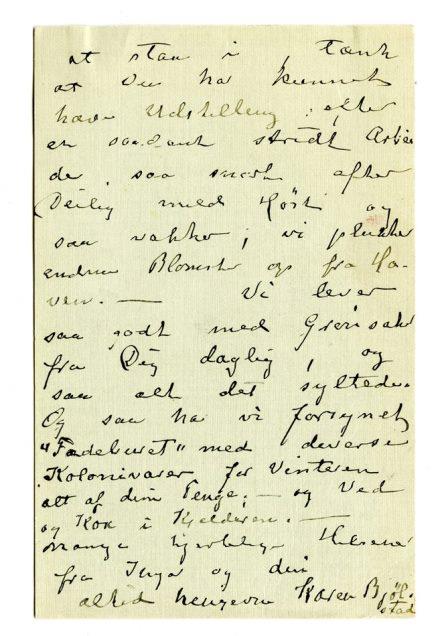 at staa i, tænk
at Du har kunnet
have Udstilling efter
en saadant stridt Arbei
de, saa snart efter
Deilig mild Høst og
saa vakker; vi plukker
endnu Blomster op fra Ha-
ven. — Vi lever
saa godt med Grønsaker
fra Dig daglig, og
saa alt det syltede.
Og saa har vi forsynet
"Fadeburet" med diverse
Kolonivarer for Vinteren
alt af dine Penge; — og Ved
og Kok i Kjelderen. —
Mange hjertelige Hilsener
fra Inga og din
altid hengivne Karen Bjøl-
stad